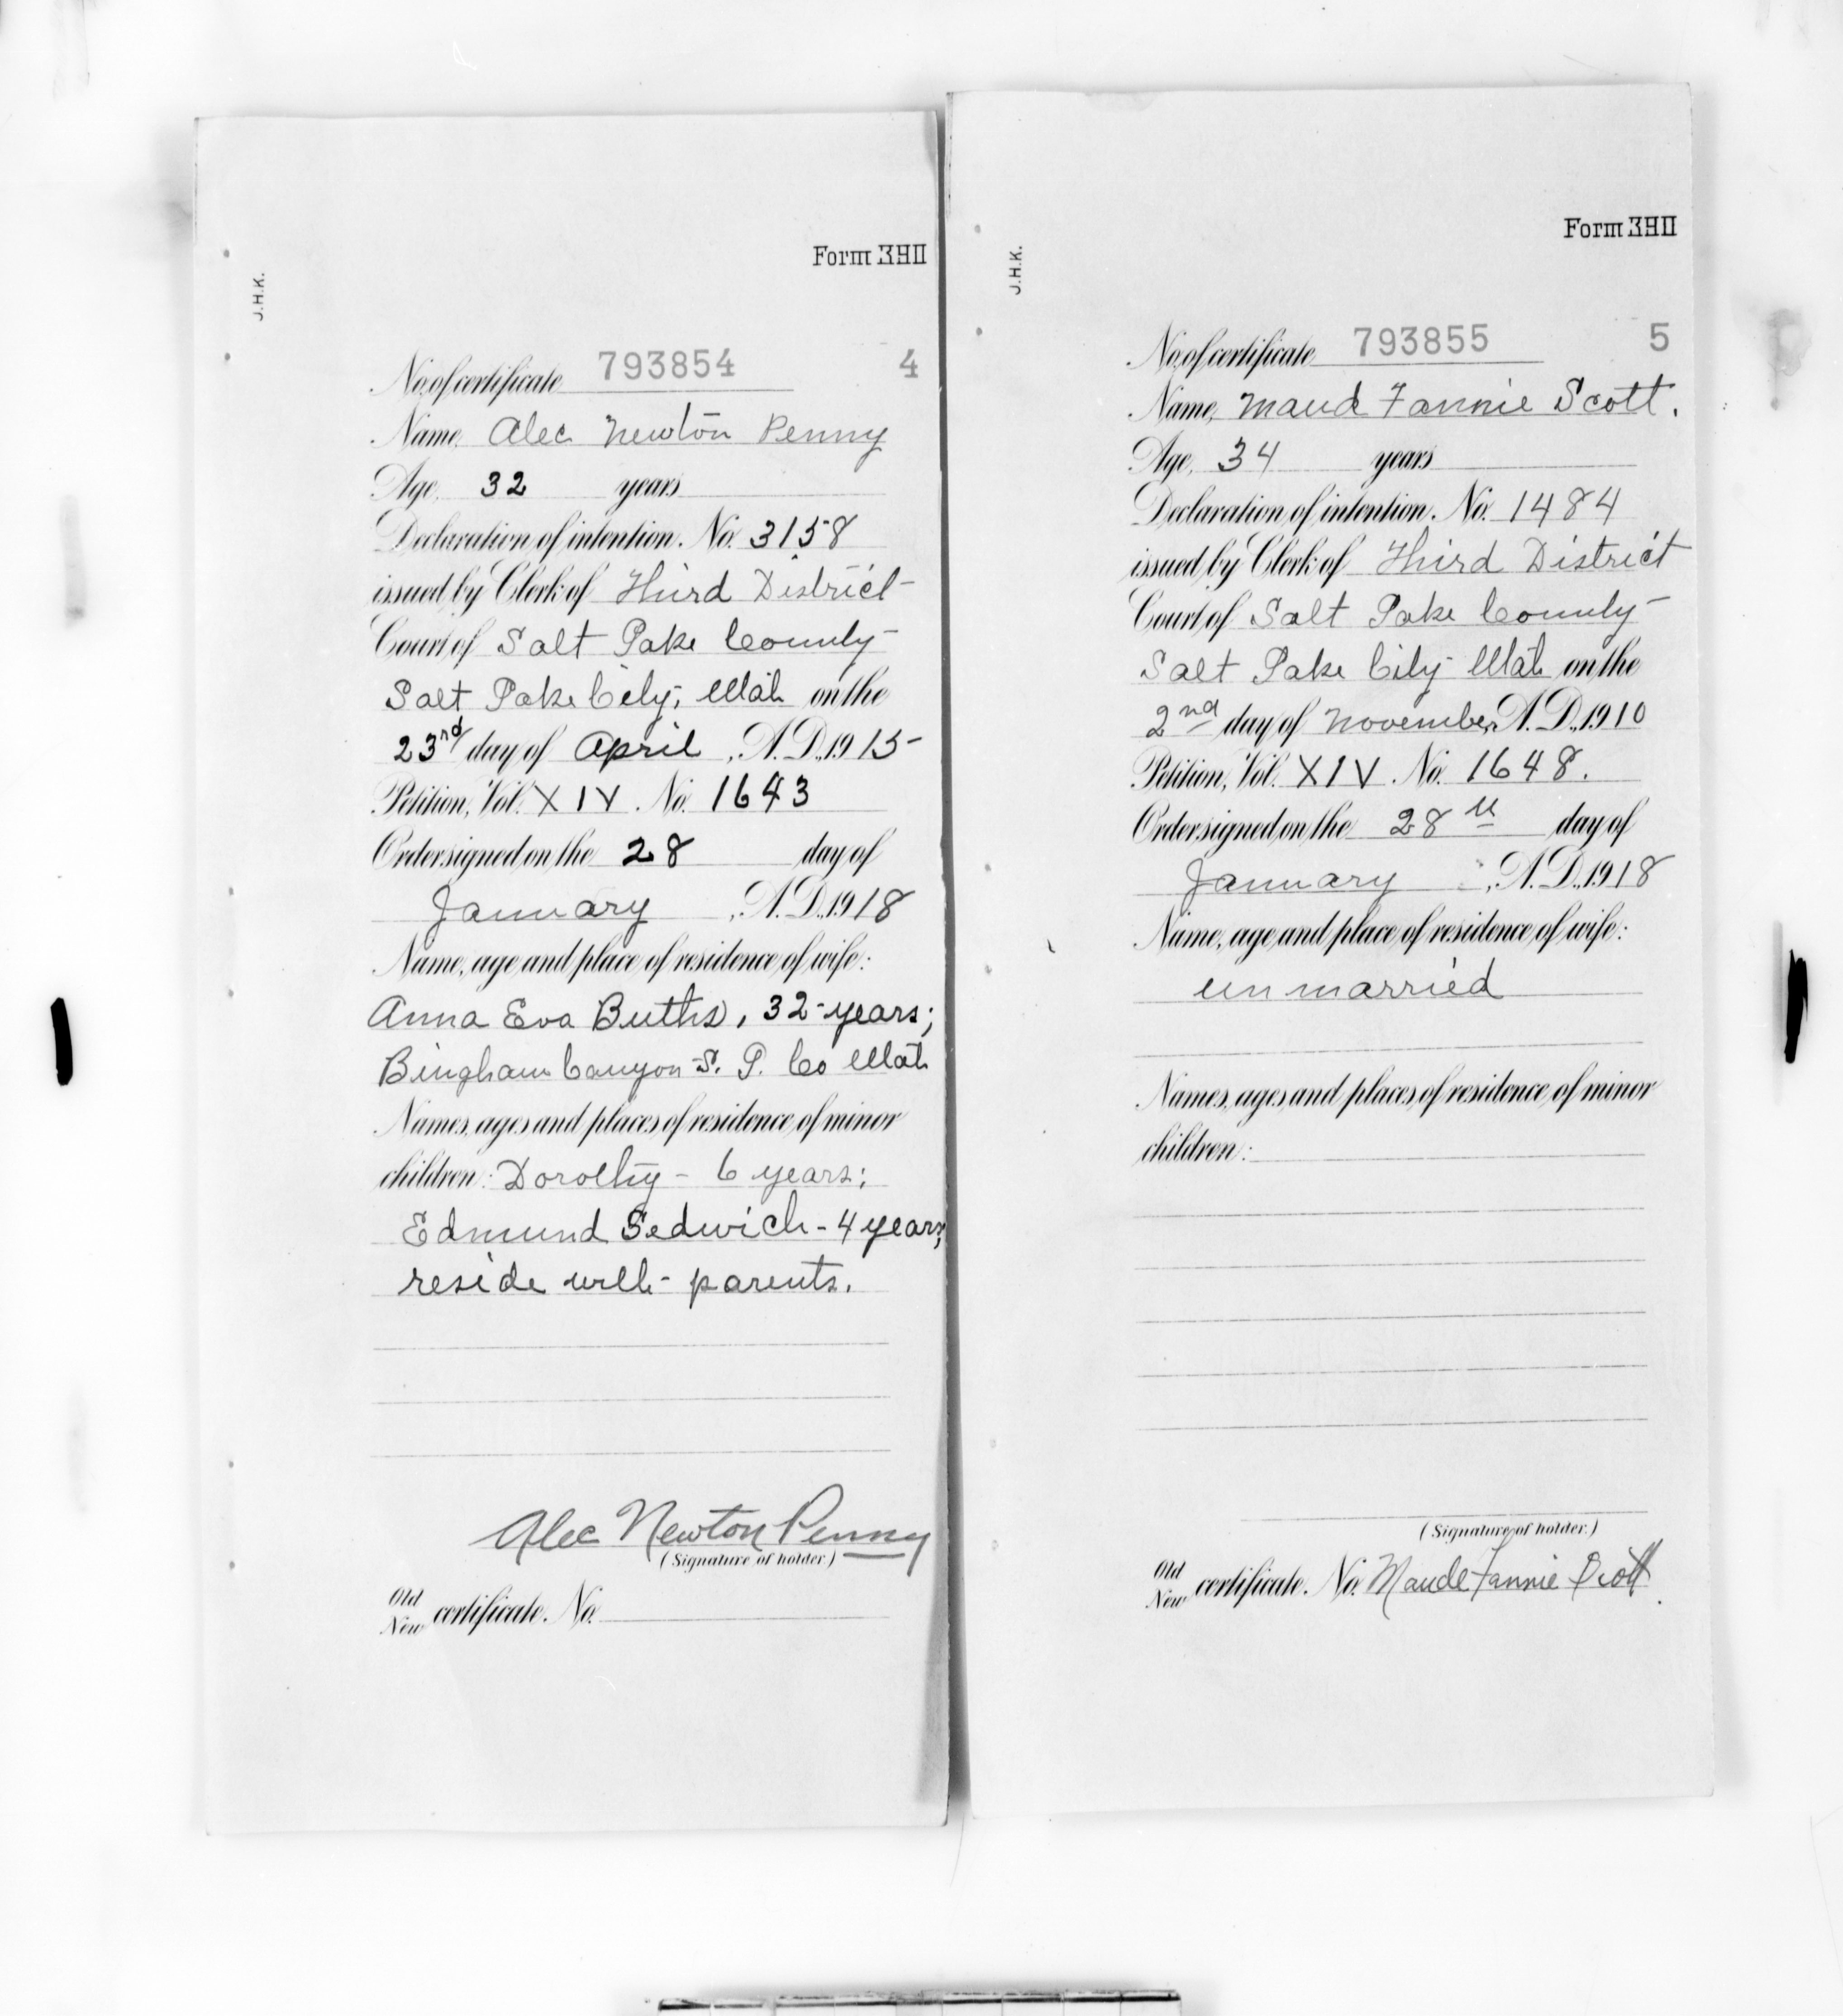 Form 3411
J.H.K.
No. of certificate 793854 4
Name, Alec Newton Penny
Age, 32 years
Declaration of intention. No. 3158
issued by Clerk of Third District
Court of Salt Lake County
Salt Lake City, Utah on the
23rd day of April, A.D., 1915
Petition, Vol. XIV. No. 1643
Order signed on the 28 day of
January, A.D., 1918
Name, age and place of residence of wife:
Anna Eva Buths, 32 years;
Bingham Canyon S. L. Co Utah
Names, ages and places of residence of minor
children: Dorothy - 6 years;
Edmund Sedwich - 4 years,
reside with parents.
Alec Newton Penny
(Signature of holder.)
Old
New certificate. No.
Form 3411
J.H.K.
No. of certificate 793855 5
Name, Maud Fannie Scott.
Age, 34 years
Declaration of intention. No. 1484
issued by Clerk of Third District
Court of Salt Lake County
Salt Lake City Utah on the
2nd day of November, A.D., 1910
Petition, Vol. XIV. No. 1648.
Order signed on the 28th day of
January, A.D., 1918
Name, age and place of residence of wife:
unmarried
Names, ages and places of residence of minor
children:
(Signature of holder.)
Old
New certificate. No. Maude Fannie Scott.